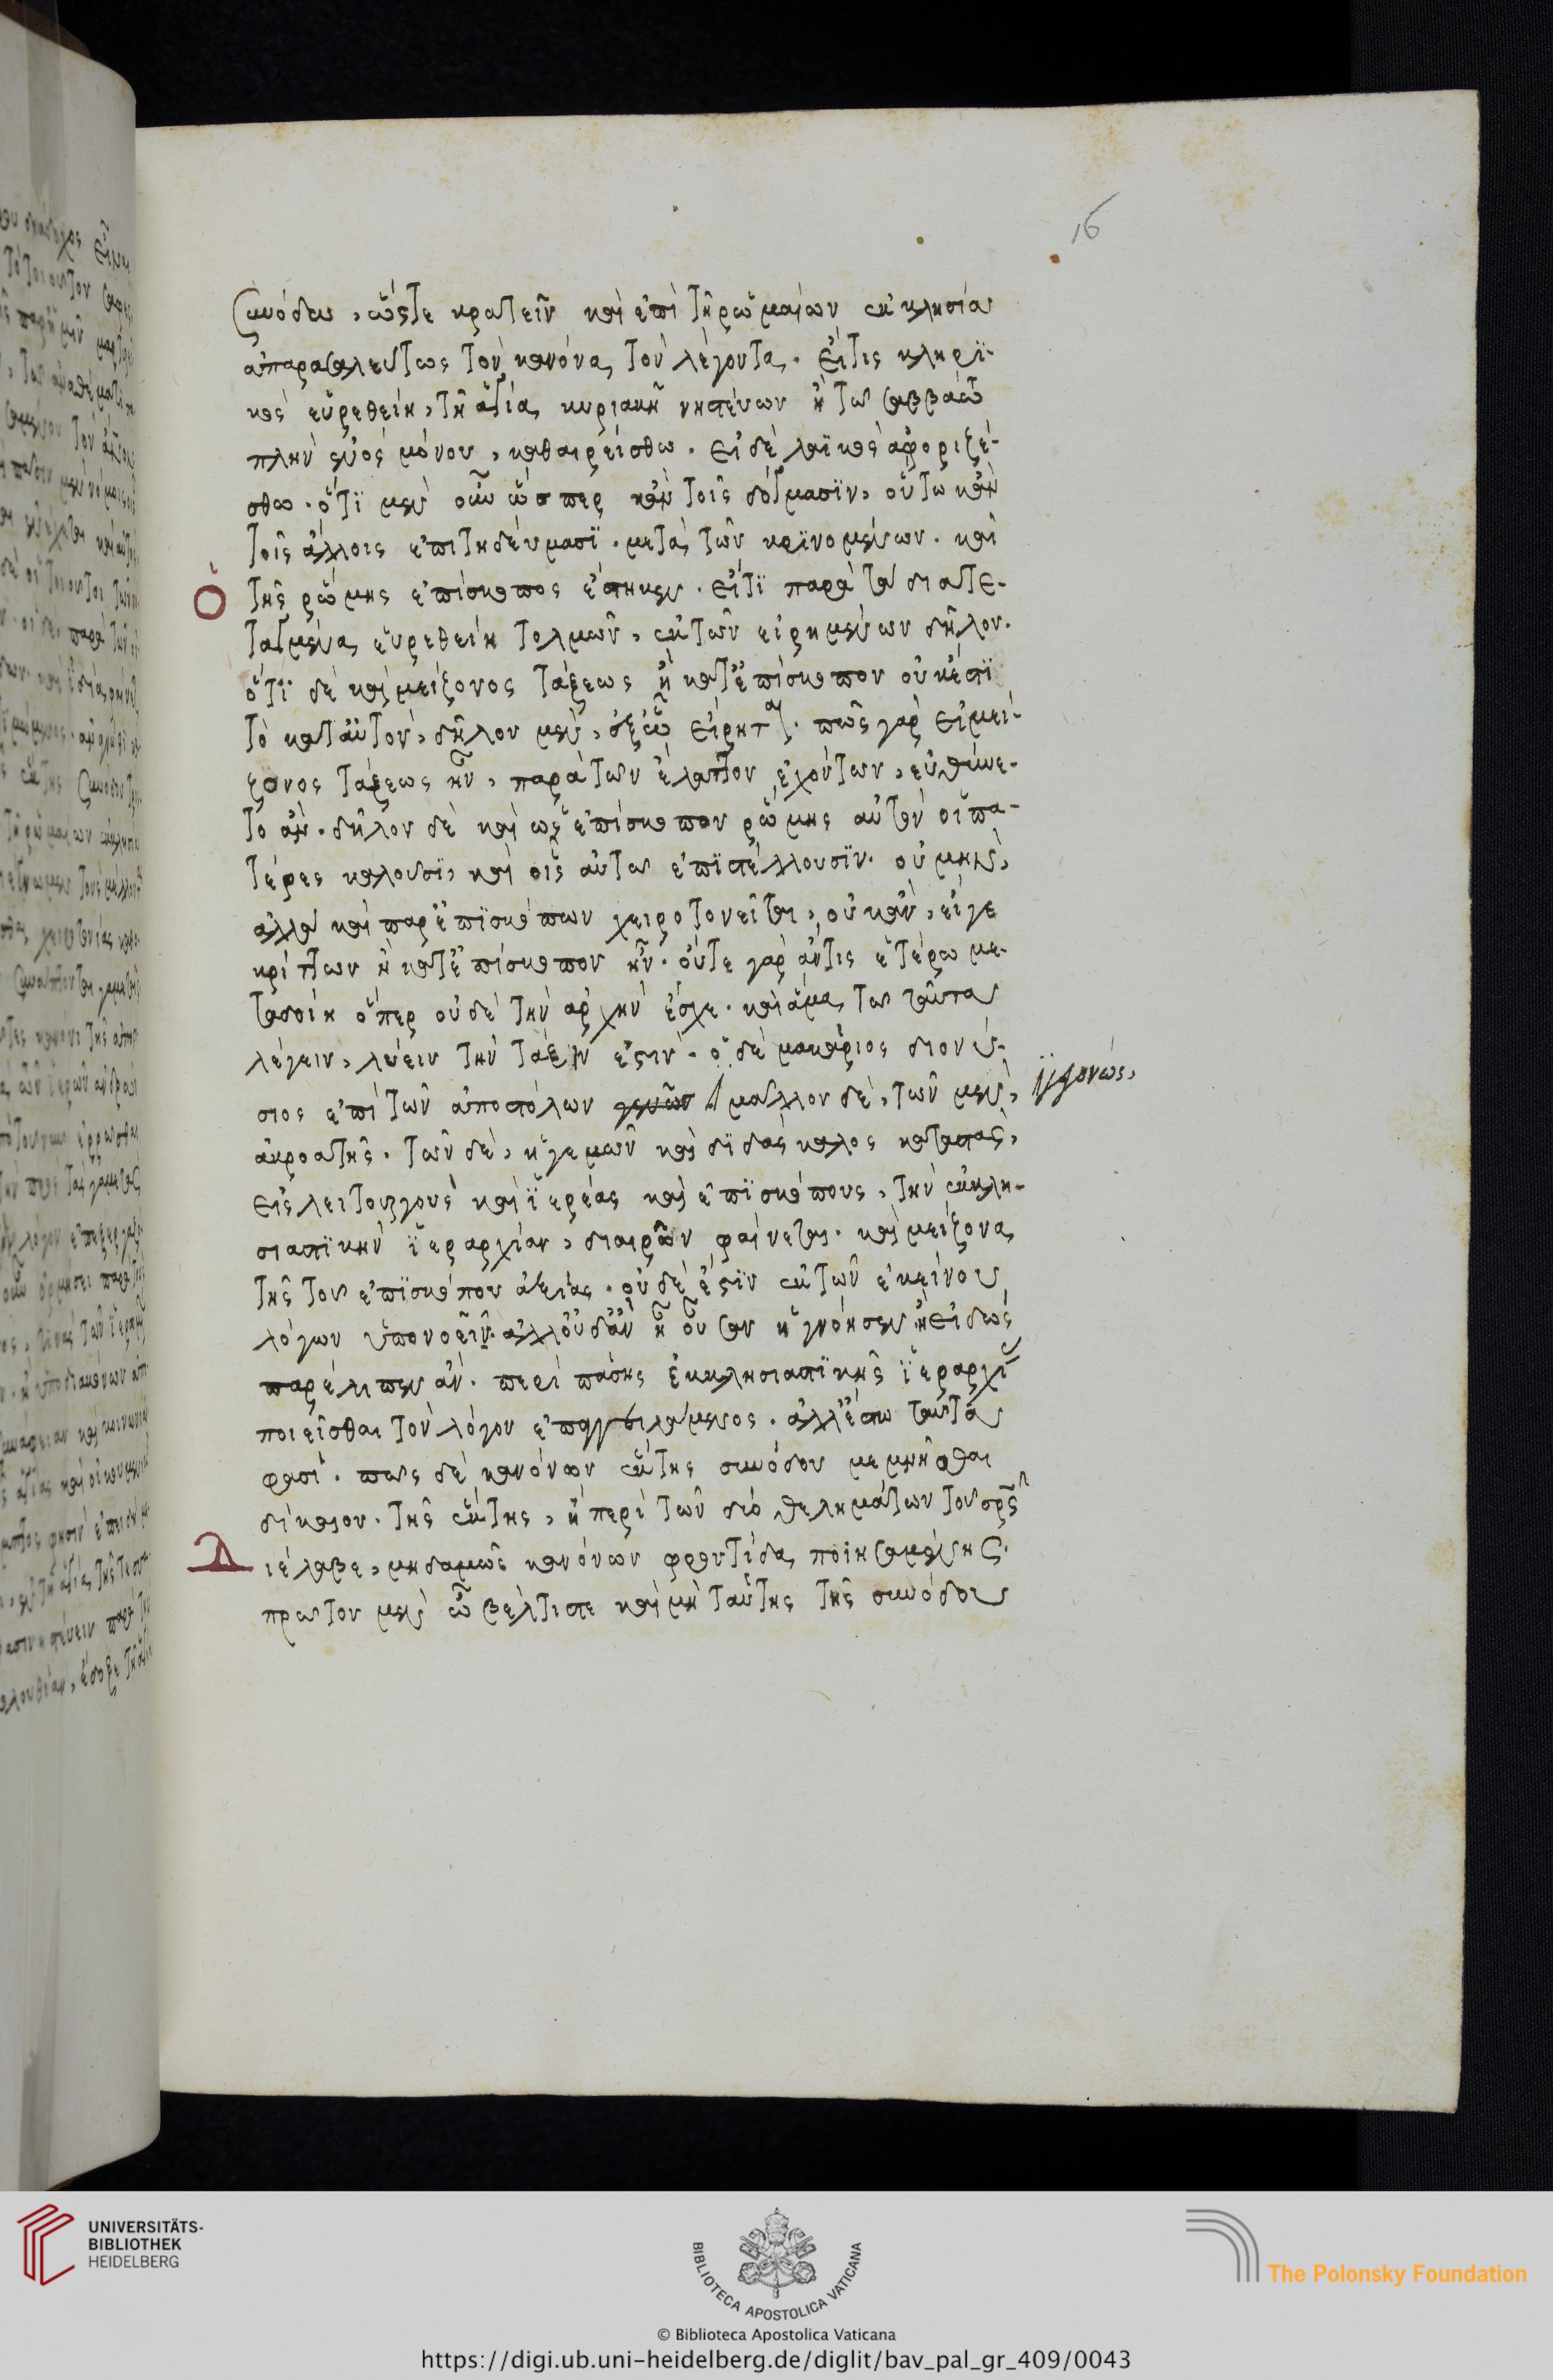 16
συνόδω, ὥστε κρατεῖν καὶ ἐπὶ τῆ ρωμαίων ἐκκλησία
ἀπαρασαλεύτως τὸν κανόνα, τὸν λέγοντα. εἴτις κληρι-
κὸς εὑρεθείη, τῆ ἁγία κυριακῆ νηστεύων ἢ τῶ σαββάτω
πλὴν ἑνὸς μόνου, καθαιρείσθω. εἰ δὲ λαϊκὸς ἀφοριζέ-
σθω. ὅτι μὲν οὖν ὥσπερ κἀν τοῖς δόγμασιν, οὕτω κἀν
τοῖς ἄλλοις ἐπιτηδεύμασι. μετὰ τῶν κρινομένων. καὶ
Ὁ τῆς ρώμης ἐπίσκοπος ἕστηκεν. εἴ τι παρὰ τὰ διατε-
ταγμένα εὑρεθείη τολμῶν, ἐκ τῶν εἰρημένων δῆλον.
ὅτι δὲ καὶ μείζονος τάξεως ἢ κατ' ἐπίσκοπον οὐκ ἔστι
τὸ κατ' αὐτὸν, δῆλον μὲν, ἐξ ὧν εἴρηται. πῶς γὰρ εἰ μεί-
ζονος τάξεως ἦν, παρὰ τῶν ἔλαττον ἐχόντων, εὐθύνε-
το ἄν. δῆλον δὲ καὶ ὡς ἐπίσκοπον ρώμης αὐτὸν οἱ πα-
τέρες καλοῦσι, καὶ οἷς αὐτῶ ἐπιστέλλουσιν. οὐ μὴν,
ἀλλὰ καὶ παρ' ἐπισκόπων χειροτονεῖται, οὐκ ἂν, εἴγε
κρίττων ἢ κατ' ἐπίσκοπον ἦν. οὔτε γὰρ ἄν τις ἑτέρω με-
ταδοίη ὅπερ οὐδὲ τὴν ἀρχὴν ἔσχε. καὶ ἅμα τῶ ταῦτα
λέγειν, λύειν τὴν τάξιν ἐστίν. ὁ δὲ μακάριος διονύ-
σιος ἐπὶ τῶν ἀποστόλων γενῶν μᾶλλον δὲ, τῶν μὲν,
γεγονώς,
ἀκροατὴς. τῶν δὲ, ἡγεμὼν καὶ διδάσκαλος καταστὰς,
εἰς λειτουργοὺς καὶ ἱερέας καὶ ἐπισκόπους, τὴν ἐκκλη-
σιαστικὴν ἱεραρχίαν, διαιρῶν φαίνεται. καὶ μείζονα
τῆς τοῦ ἐπισκόπου ἀξίας. οὐδὲ ἔστιν ἐκ τῶν ἐκείνου
λόγων ὑπονοεῖν. ἀλλ' οὐδ' ἂν ἢ οὖσαν ἠγνόησεν, ἢ εἰδὼς
παρέλιπεν ἄν. περὶ πάσης ἐκκλησιαστικῆς ἱεραρχίας
ποιεῖσθαι τὸν λόγον ἐπαγγειλάμενος. ἀλλ' ἔστω ταῦτα
φασί. πῶς δὲ κανόνων ἕκτης συνόδου μεμνῆσθαι
δίκαιον. τῆς ἕκτης, ἢ περὶ τῶν δύο θελημάτων τοῦ σρς
Διέλαβε, μηδαμῶς κανόνων φροντίδα ποιησαμένης.
πρῶτον μὲν ὦ βέλτιστε καὶ μὴ ταύτης τῆς συνόδου
UNIVERSITÄTS-
BIBLIOTHEK
HEIDELBERG
BIBLIOTECA APOSTOLICA VATICANA
The Polonsky Foundation
© Biblioteca Apostolica Vaticana
https://digi.ub.uni-heidelberg.de/diglit/bav_pal_gr_409/0043